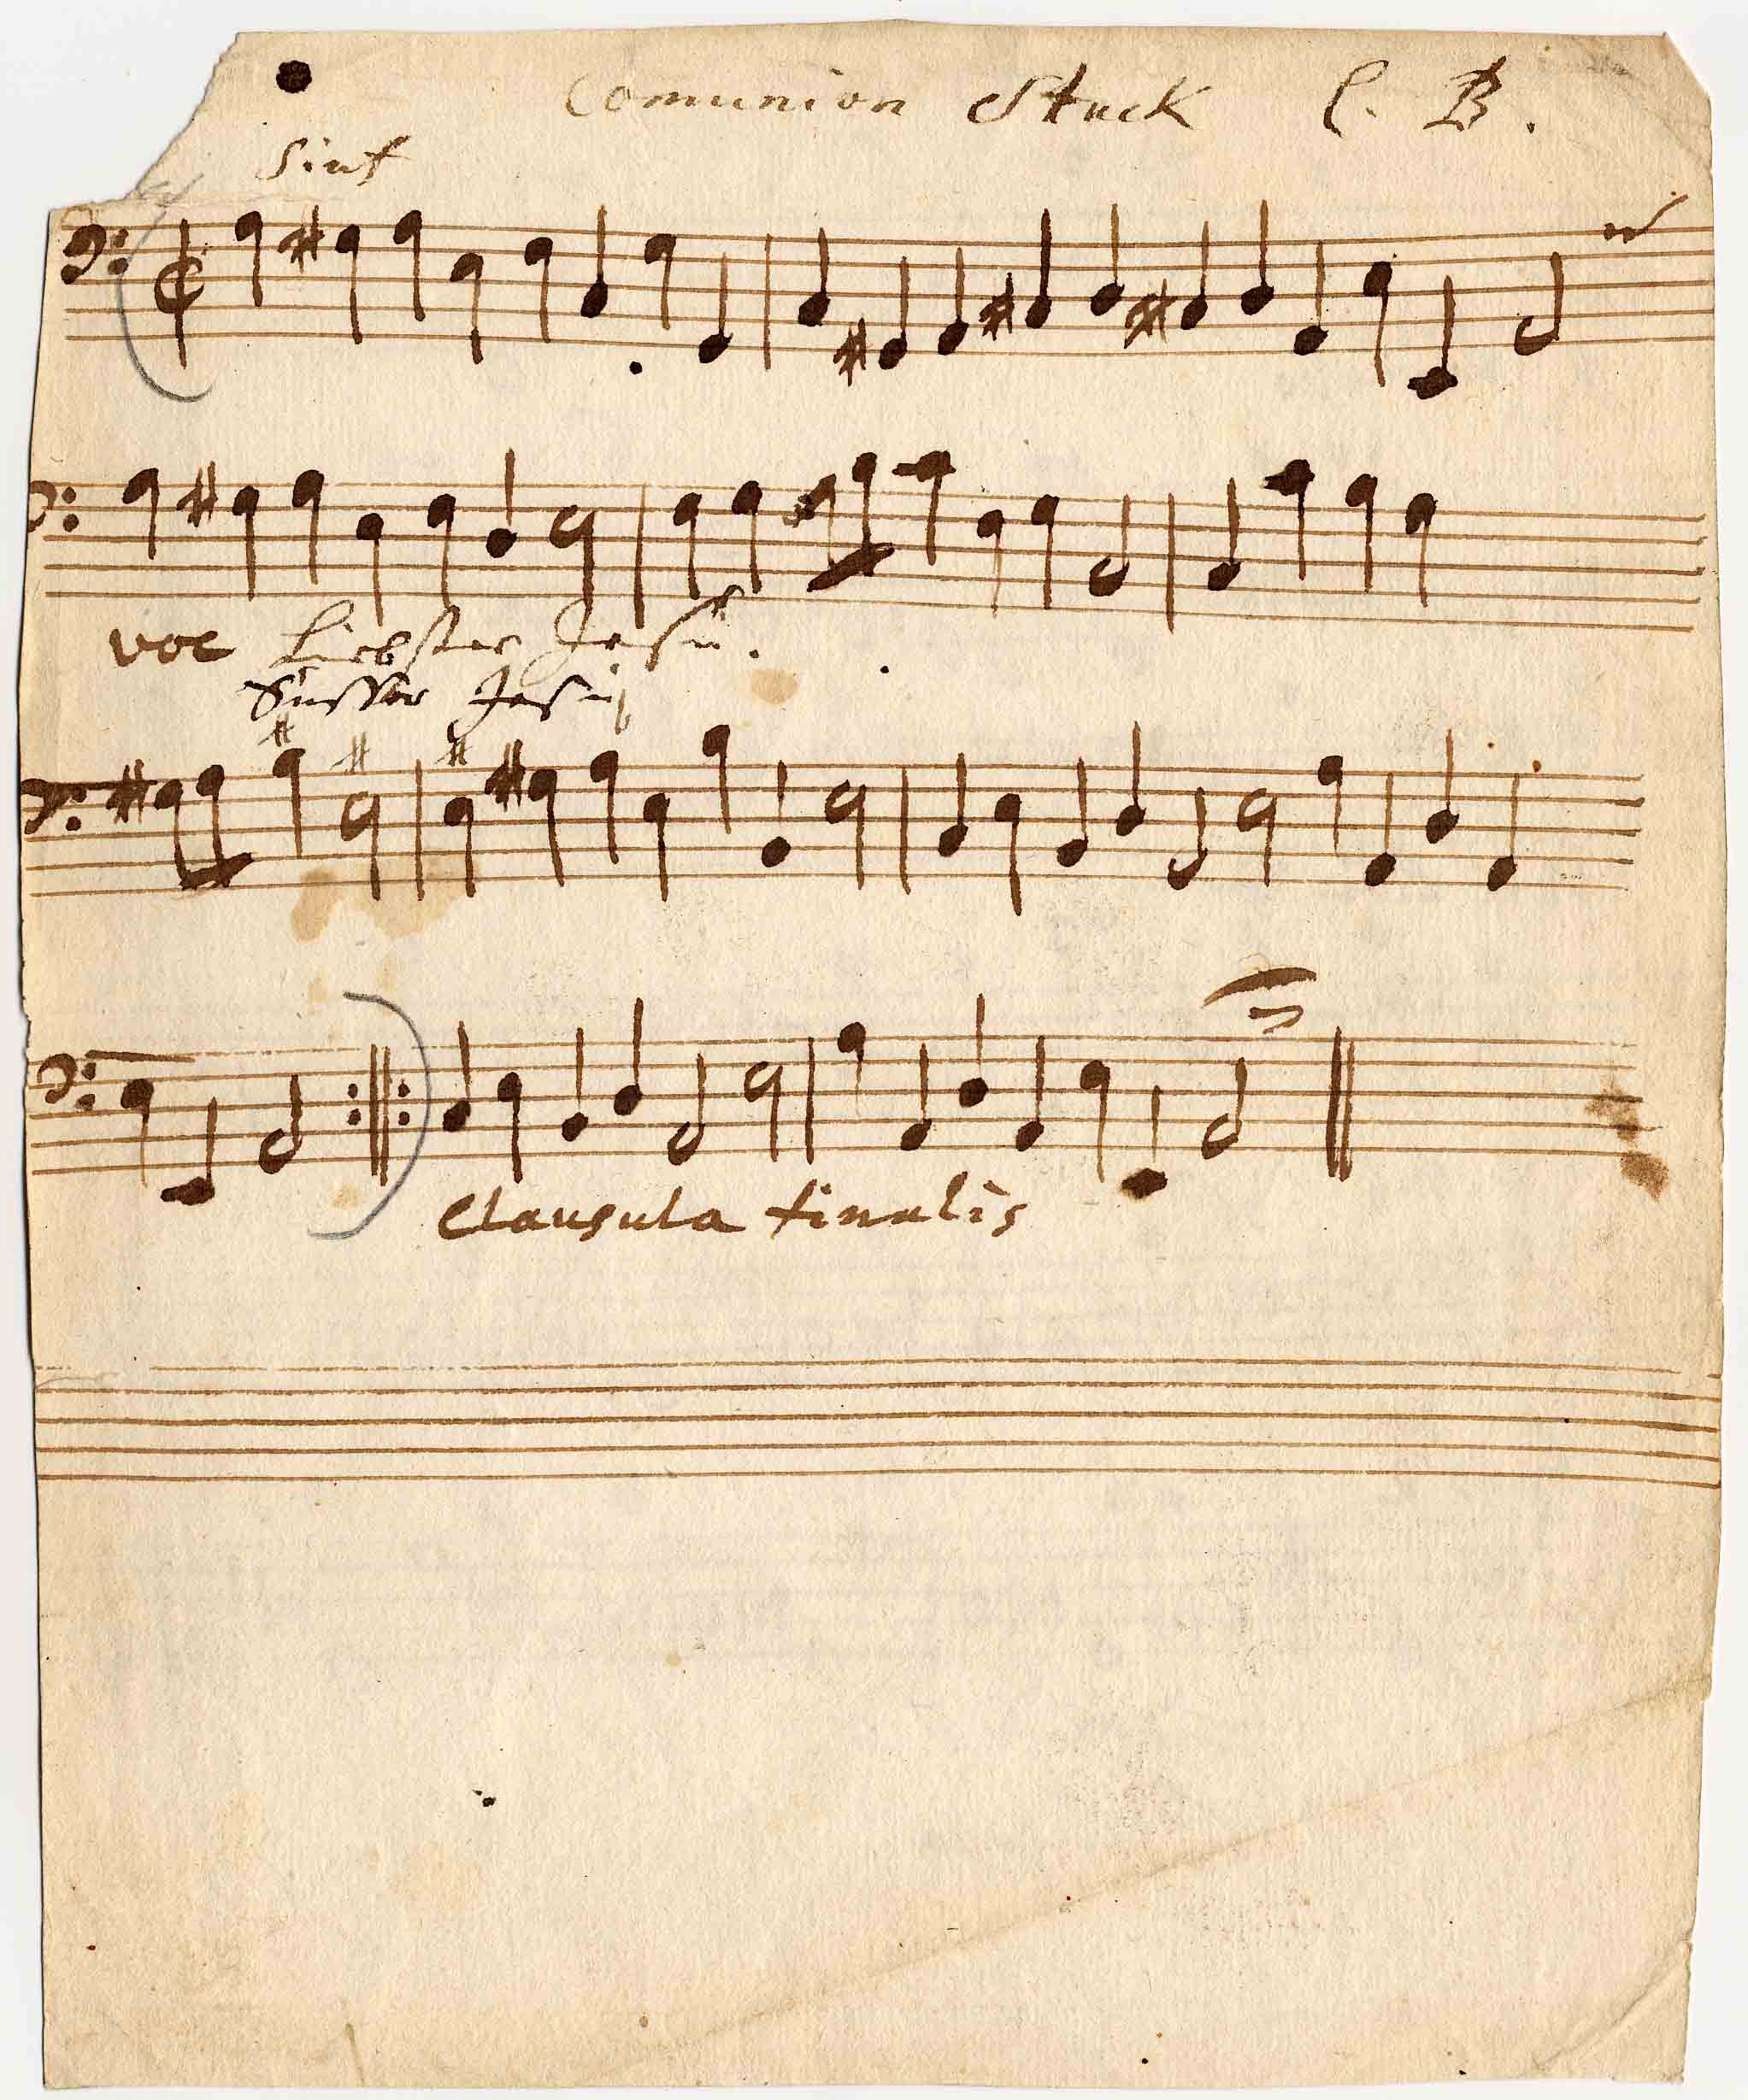 Comunion Stuck C. B.
Sinf
voc Liebster Jesu.
Süsser Jesu
Clausula finalis